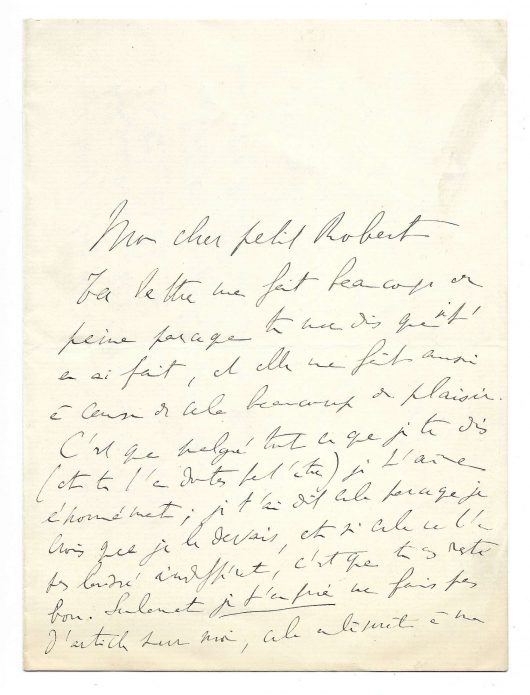 Mon cher petit Robert
Ta lettre me fait beaucoup de
peine parce que tu me dis que je t'
en ai fait, et elle me fait aussi
à cause de cela beaucoup de plaisir.
C'est que malgré tout ce que je te dis
(et tu t'en doutes peut'être) je t'aime
énormément ; je t'ai dit cela parce que je
crois que je le devais, et si cela ne t'a
pas laissé indifférent, c'est que tu es resté
bon. Seulement je t'en prie ne fais pas
d'article sur moi, cela à ma